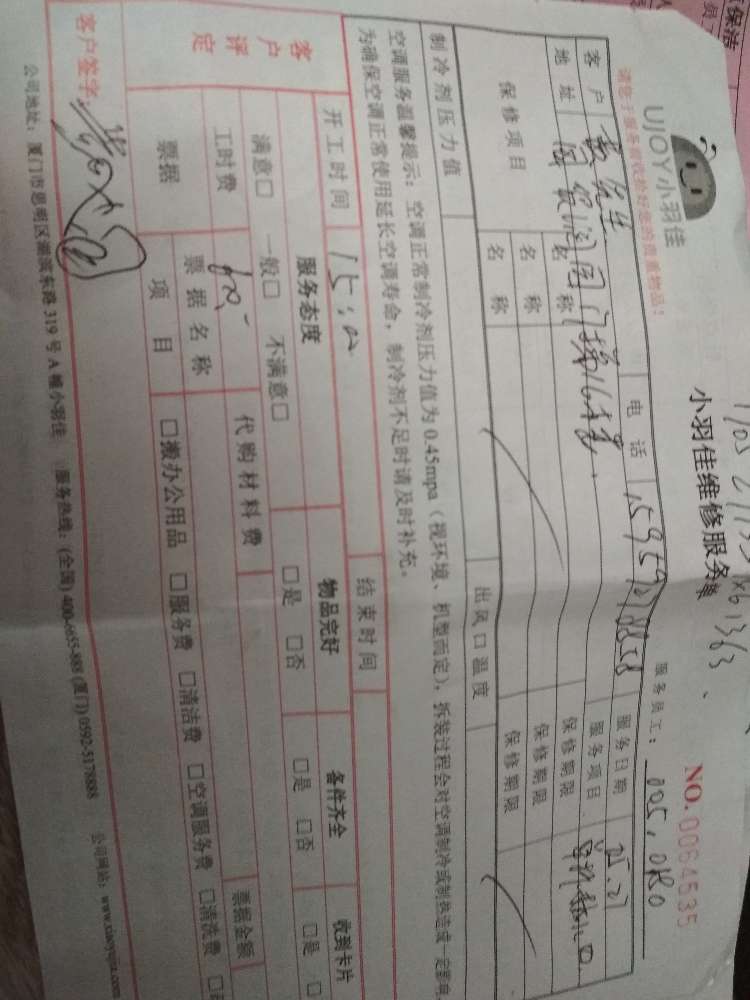 保洁
UJOY小羽佳
小羽佳维修服务单
NO. 0064535
请您于服务前收拾好您的贵重物品!
服务员工: 005, 080
客户
电话
服务日期
地址
服务项目
保修项目
名称
保修期限
名称
保修期限
名称
保修期限
制冷剂压力值
出风口温度
空调服务温馨提示: 空调正常制冷剂压力值为 0.45mpa (视环境、机型而定), 拆装过程会对空调制冷或制热造成一定影响
为确保空调正常使用延长空调寿命, 制冷剂不足时请及时补充。
开工时间
结束时间
客户评定
服务态度
物品完好
备件齐全
收到卡片
满意□ 一般□ 不满意□
□是 □否
□是 □否
□是 □
工时费
代购材料费
票据
票据名称
票据金额
项目
□搬办公用品 □服务费 □清洁费 □空调服务费 □清洗费
客户签字:
公司地址: 厦门市思明区湖滨东路 319 号 A 幢小羽佳 服务热线: (全国) 400-6655-888 (厦门) 0592-5178888 公司网站: www.xiaoyujia.com